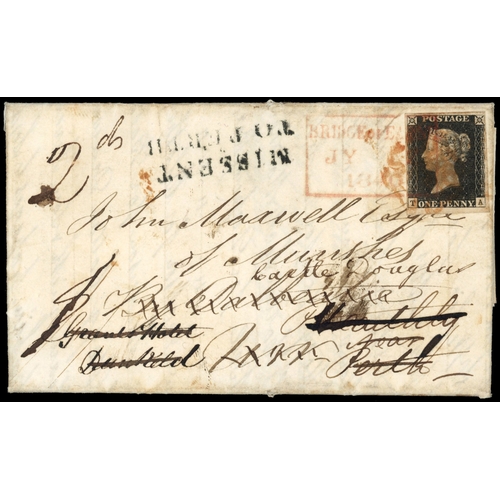 2 d
MISSENT
TO PERTH
BRIDGE OF EARN
JY
184
POSTAGE
ONE PENNY
T A
John Maxwell Esqre
of Munshes
Castle Douglas
Grants Hotel
Dunkeld
near
Perth